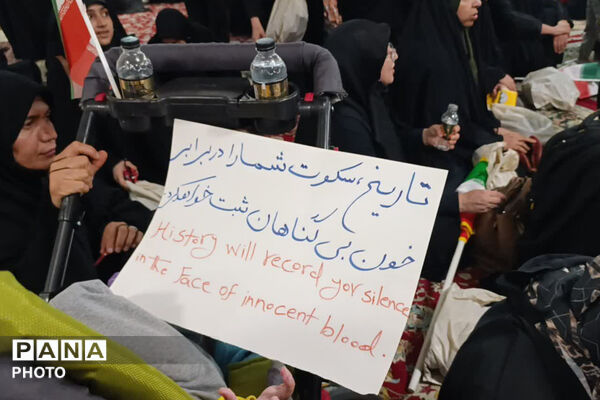 تاریخ، سکوت شما را در برابر
خون بی گناهان ثبت خواهد کرد
History will record yor silence
in the Face of innocent blood.
PANA
PHOTO